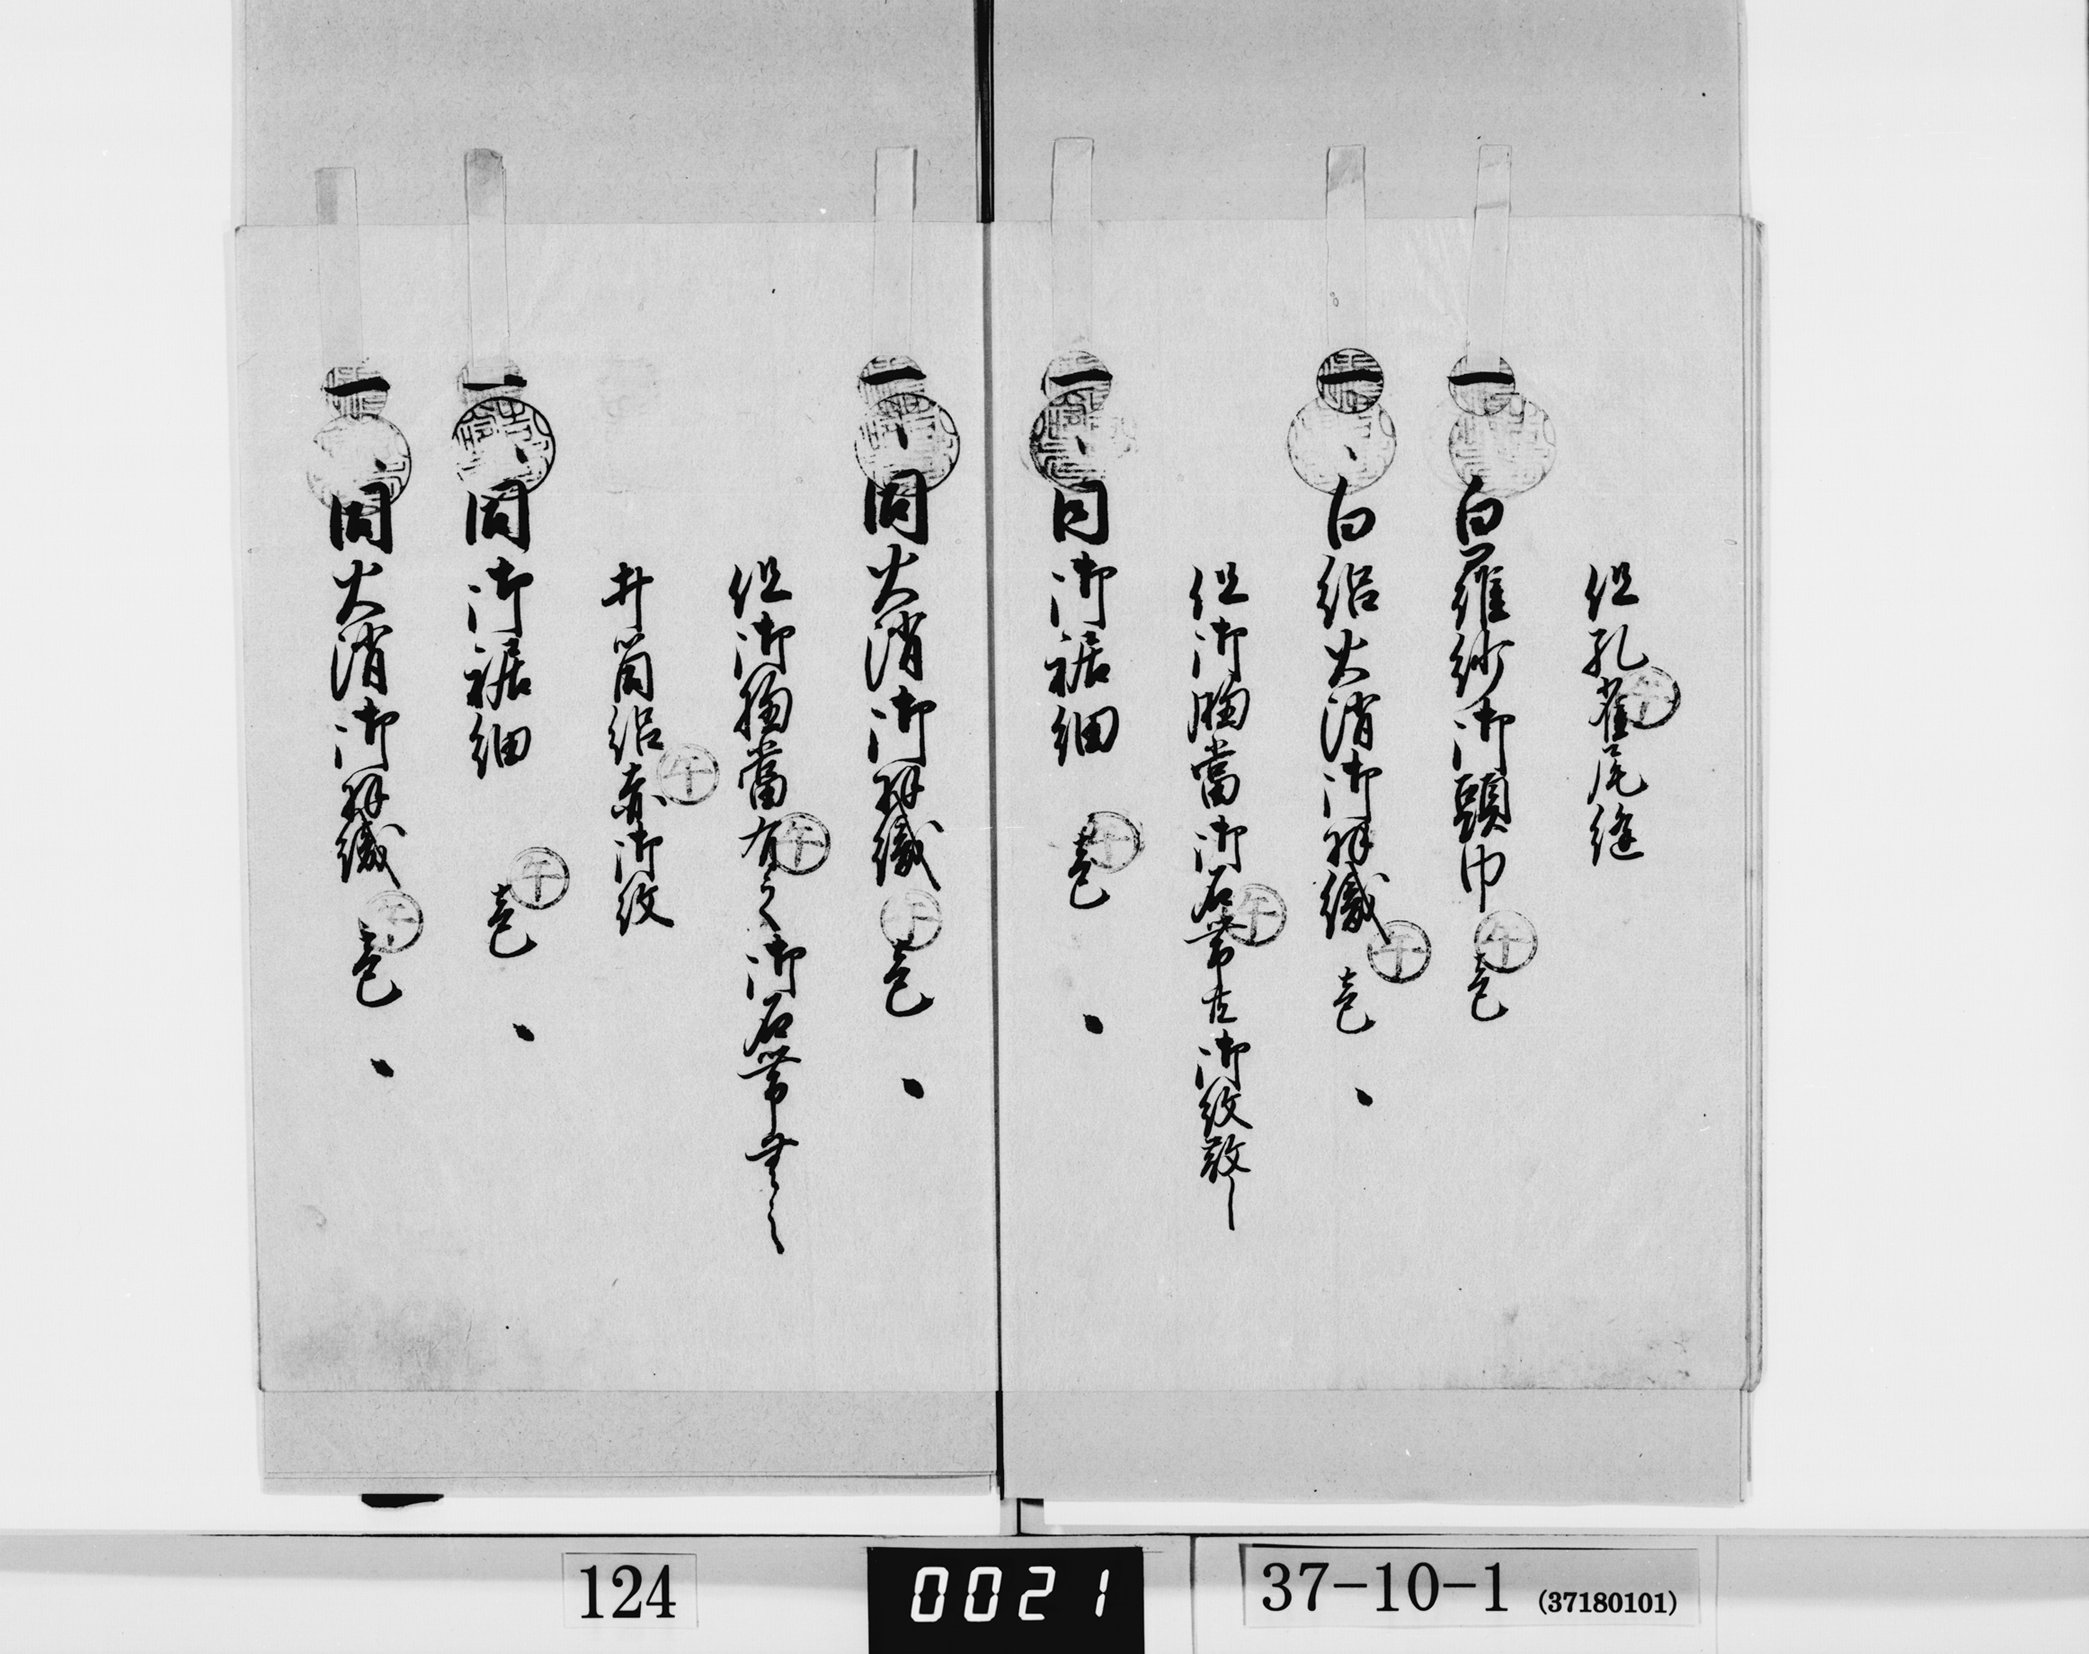 但孔雀尾縫
一、白羅紗御頭巾 壱
一、白絽火消御羽織 壱、
但御胸當御石帯共御紋散し
一、同御裾細 壱、
一、同火消御羽織 壱、
但御胸當有之御石帯無之
井筒絽赤御紋
一、同御裾細 壱、
一、同火消御羽織 壱、
午
午
午
午
午
午
午
午
午
124
0021
37-10-1 (37180101)